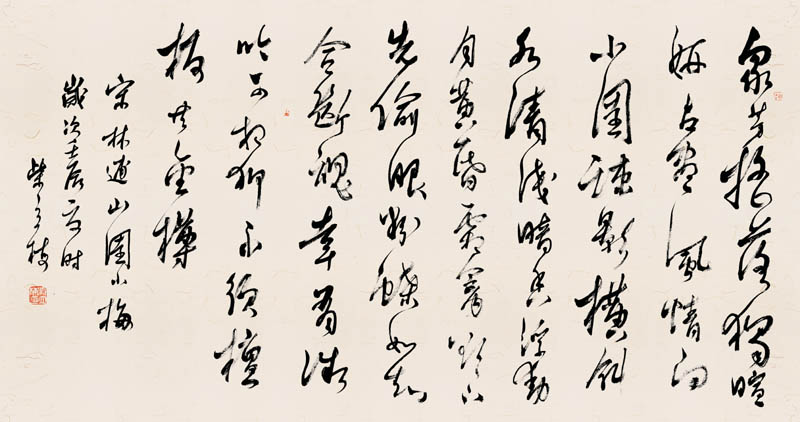 衆芳摇落獨暄
妍占盡風情向
小園疏影橫斜
水清浅暗香浮動
月黄昏霜禽欲下
先偷眼粉蝶如知
合斷魂幸有微
吟可相狎不須檀
板共金樽
宋林逋山園小梅
歲次壬辰夏时
柴